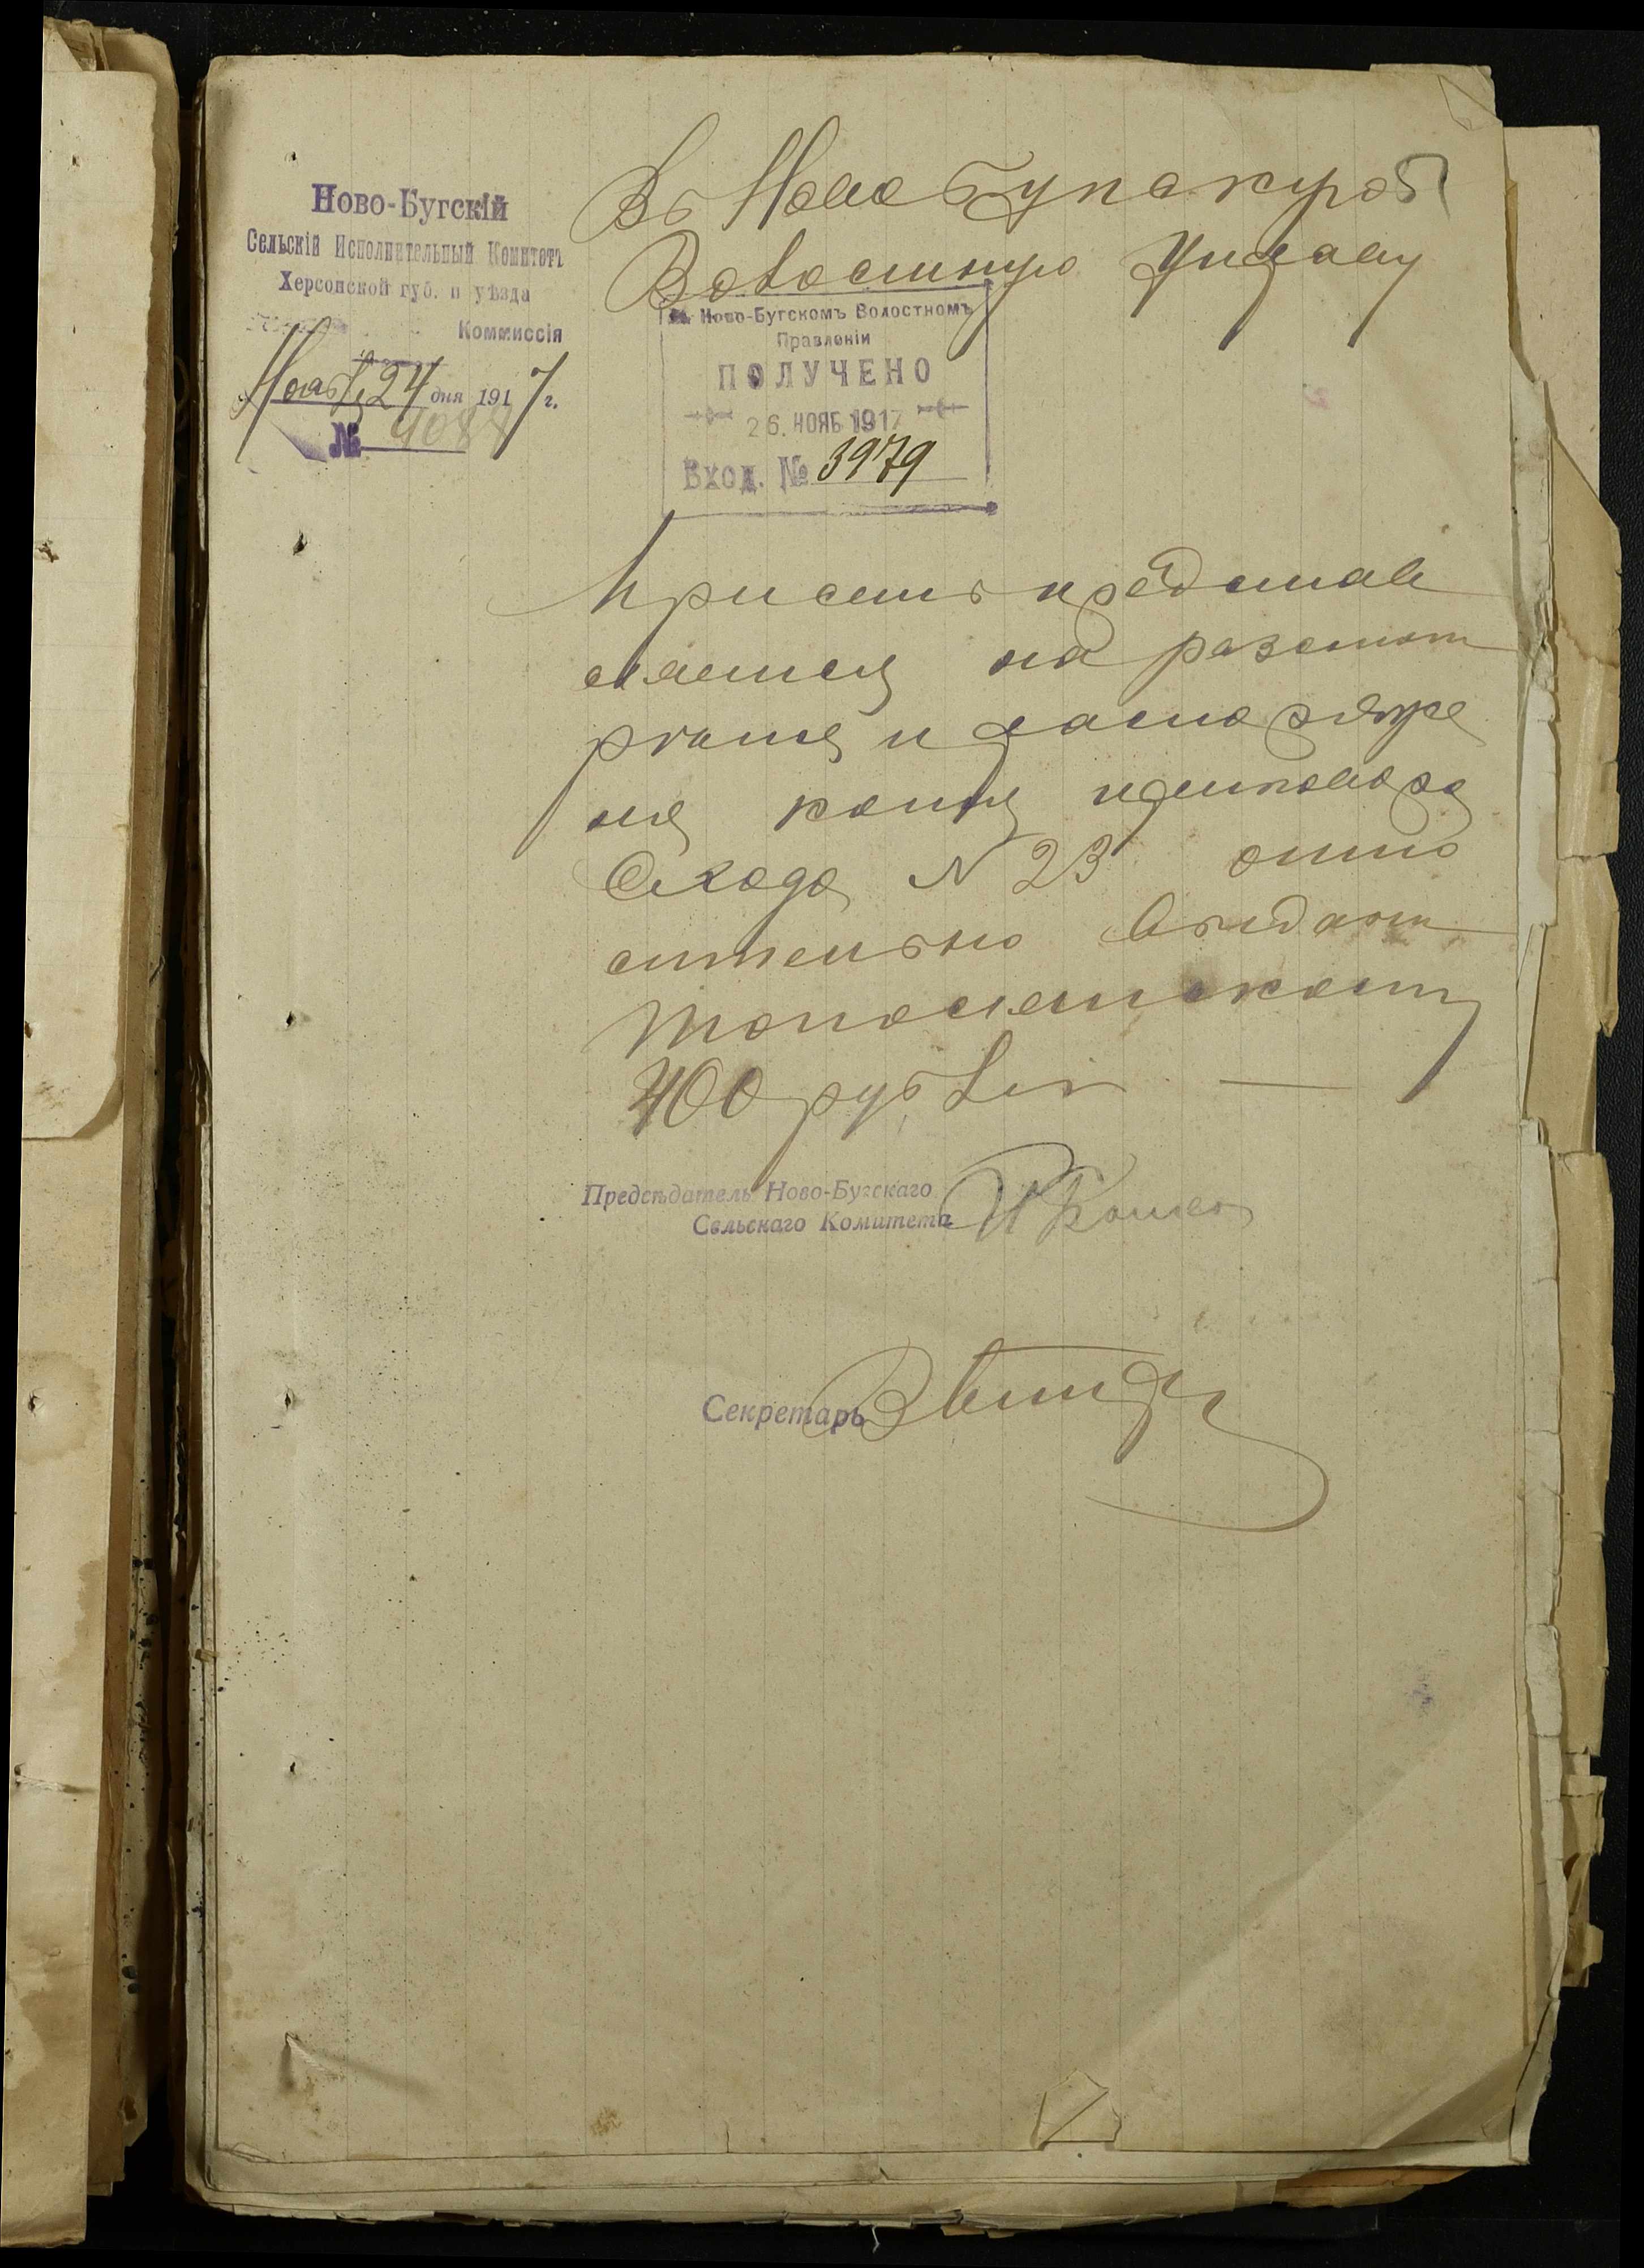 Ново-Бугскій
Сельскій Исполнительный Комитетъ
Херсонской губ. и уѣзда
Коммиссія
Нояб 24 дня 1917 г.
№ 4088
Въ Ново Бугскую
Волостную Управу
Въ Ново-Бугскомъ Волостномъ
Правленіи
ПОЛУЧЕНО
26. НОЯБ 1917
Вход. № 3979
При семъ представ
ляется на разсмот
рѣние и распоряже
ния копия приговора
Схода N 23 отно
сительно выдачи
400 рублей —
Предсѣдатель Ново-Бугскаго
Сельскаго Комитета
Секретарь